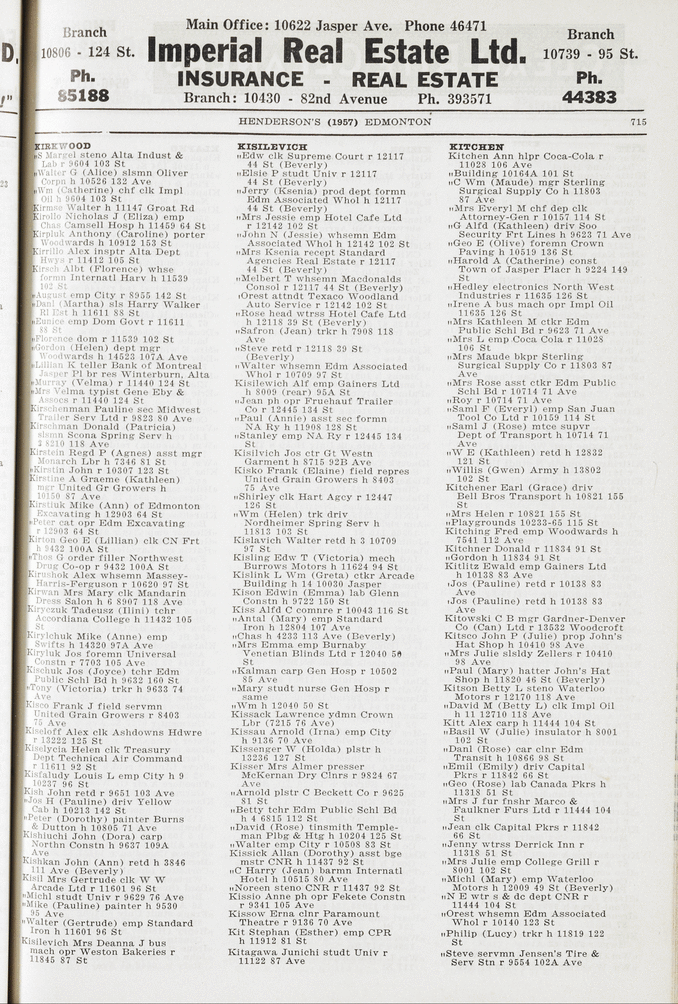 Branch
10806 - 124 St.
Ph.
85188
Main Office: 10622 Jasper Ave. Phone 46471
Imperial Real Estate Ltd.
INSURANCE - REAL ESTATE
Branch: 10430 - 82nd Avenue Ph. 393571
Branch
10739 - 95 St.
Ph.
44383
HENDERSON'S (1957) EDMONTON 715
KIRKWOOD
"S Margel steno Alta Indust &
Lab r 9604 103 St
"Walter G (Alice) slsmn Oliver
Corpn h 10526 132 Ave
"Wm (Catherine) chf clk Impl
Oil h 9604 103 St
Kirmse Walter h 11147 Groat Rd
Kirollo Nicholas J (Eliza) emp
Chas Camsell Hosp h 11459 64 St
Kirpluk Anthony (Caroline) porter
Woodwards h 10912 153 St
Kirrillo Alex insptr Alta Dept
Hwys r 11412 105 St
Kirsch Albt (Florence) whse
formn Internatl Harv h 11539
102 St
"August emp City r 8955 142 St
"Danl (Martha) sls Harry Walker
Rl Est h 11611 88 St
"Eunice emp Dom Govt r 11611
88 St
"Florence dom r 11539 102 St
"Gordon (Helen) dept mgr
Woodwards h 14523 107A Ave
"Lillian K teller Bank of Montreal
Jasper Pl br res Winterburn, Alta
"Murray (Velma) r 11440 124 St
"Mrs Velma typist Gene Eby &
Assocs r 11440 124 St
Kirschenman Pauline sec Midwest
Trailer Serv Ltd r 9823 80 Ave
Kirschman Donald (Patricia)
slsmn Scona Spring Serv h
3 8210 118 Ave
Kirstein Regd P (Agnes) asst mgr
Monarch Lbr h 7346 81 St
"Kirstin John r 10307 123 St
Kirstine A Graeme (Kathleen)
mgr United Gr Growers h
10150 87 Ave
Kirstiuk Mike (Ann) of Edmonton
Excavating h 12903 64 St
"Peter cat opr Edm Excavating
r 12903 64 St
Kirton Geo E (Lillian) clk CN Frt
h 9432 100A St
"Thos G order filler Northwest
Drug Co-op r 9432 100A St
Kirushok Alex whsemn Massey-
Harris-Ferguson r 10620 97 St
Kirwan Mrs Mary clk Mandarin
Dress Salon h 6 8907 118 Ave
Kiryczuk Tadeusz (Ilini) tchr
Accordiana College h 11432 105
St
Kirylchuk Mike (Anne) emp
Swifts h 14320 97A Ave
Kiryluk Jos foremn Universal
Constn r 7703 105 Ave
Kischuk Jos (Joyce) tchr Edm
Public Schl Bd h 9632 160 St
"Tony (Victoria) trkr h 9633 74
Ave
Kisco Frank J field servmn
United Grain Growers r 8403
75 Ave
Kiseloff Alex clk Ashdowns Hdwre
r 13222 125 St
Kiselycia Helen clk Treasury
Dept Technical Air Command
r 11611 92 St
Kisfaludy Louis L emp City h 9
10237 96 St
Kish John retd r 9651 103 Ave
"Jos H (Pauline) driv Yellow
Cab h 10213 142 St
"Peter (Dorothy) painter Burns
& Dutton h 10805 71 Ave
Kishiuchi John (Dora) carp
Northn Constn h 9637 109A
Ave
Kishkan John (Ann) retd h 3846
111 Ave (Beverly)
Kisil Mrs Gertrude clk W W
Arcade Ltd r 11601 96 St
"Michl studt Univ r 9629 76 Ave
"Mike (Pauline) painter h 9530
95 Ave
"Walter (Gertrude) emp Standard
Iron h 11601 96 St
Kisilevich Mrs Deanna J bus
mach opr Weston Bakeries r
11845 87 St
KISILEVICH
"Edw clk Supreme Court r 12117
44 St (Beverly)
"Elsie P studt Univ r 12117
44 St (Beverly)
"Jerry (Ksenia) prod dept formn
Edm Associated Whol h 12117
44 St (Beverly)
"Mrs Jessie emp Hotel Cafe Ltd
r 12142 102 St
"John N (Jessie) whsemn Edm
Associated Whol h 12142 102 St
"Mrs Ksenia recept Standard
Agencies Real Estate r 12117
44 St (Beverly)
"Melbert T whsemn Macdonalds
Consol r 12117 44 St (Beverly)
"Orest attndt Texaco Woodland
Auto Service r 12142 102 St
"Rose head wtrss Hotel Cafe Ltd
h 12118 39 St (Beverly)
"Safron (Jean) trkr h 7908 118
Ave
"Steve retd r 12118 39 St
(Beverly)
"Walter whsemn Edm Associated
Whol r 10709 97 St
Kisilewich Alf emp Gainers Ltd
h 8009 (rear) 95A St
"Jean ph opr Fruehauf Trailer
Co r 12445 134 St
"Paul (Annie) asst sec formn
NA Ry h 11908 128 St
"Stanley emp NA Ry r 12445 134
St
Kisilvich Jos ctr Gt Westn
Garment h 8715 92B Ave
Kisko Frank (Elaine) field repres
United Grain Growers h 8403
75 Ave
"Shirley clk Hart Agcy r 12447
126 St
"Wm (Helen) trk driv
Nordheimer Spring Serv h
11813 103 St
Kislavich Walter retd h 3 10709
97 St
Kisling Edw T (Victoria) mech
Burrows Motors h 11624 94 St
Kislink L Wm (Greta) ctkr Arcade
Building h 14 10030 Jasper
Kison Edwin (Emma) lab Glenn
Constn h 9722 150 St
Kiss Alfd C comnre r 10043 116 St
"Antal (Mary) emp Standard
Iron h 12804 107 Ave
"Chas h 4233 113 Ave (Beverly)
"Mrs Emma emp Burnaby
Venetian Blinds Ltd r 12040 50
St
"Kalman carp Gen Hosp r 10502
85 Ave
"Mary studt nurse Gen Hosp r
same
"Wm h 12040 50 St
Kissack Lawrence ydmn Crown
Lbr (7215 76 Ave)
Kissau Arnold (Irna) emp City
h 9136 70 Ave
Kissenger W (Holda) plstr h
13236 127 St
Kisser Mrs Almer presser
McKernan Dry Clnrs r 9824 67
Ave
"Arnold plstr C Beckett Co r 9625
81 St
"Betty tchr Edm Public Schl Bd
h 4 6815 112 St
"David (Rose) tinsmith Temple-
man Plbg & Htg h 10204 125 St
"Walter emp City r 10508 83 St
Kissick Allan (Dorothy) asst bge
mstr CNR h 11437 92 St
"C Harry (Jean) barmn Internatl
Hotel h 10515 80 Ave
"Noreen steno CNR r 11437 92 St
Kissio Anne ph opr Fekete Constn
r 9341 105 Ave
Kissow Erna clnr Paramount
Theatre r 9136 70 Ave
Kit Stephan (Esther) emp CPR
h 11912 81 St
Kitagawa Junichi studt Univ r
11122 87 Ave
KITCHEN
Kitchen Ann hlpr Coca-Cola r
11028 106 Ave
"Building 10164A 101 St
"C Wm (Maude) mgr Sterling
Surgical Supply Co h 11803
87 Ave
"Mrs Everyl M chf dep clk
Attorney-Gen r 10157 114 St
"G Alfd (Kathleen) driv Soo
Security Frt Lines h 9623 71 Ave
"Geo E (Olive) foremn Crown
Paving h 10519 136 St
"Harold A (Catherine) const
Town of Jasper Placr h 9224 149
St
"Hedley electronics North West
Industries r 11635 126 St
"Irene A bus mach opr Impl Oil
11635 126 St
"Mrs Kathleen M ctkr Edm
Public Schl Bd r 9623 71 Ave
"Mrs L emp Coca Cola r 11028
106 St
"Mrs Maude bkpr Sterling
Surgical Supply Co r 11803 87
Ave
"Mrs Rose asst ctkr Edm Public
Schl Bd r 10714 71 Ave
"Roy r 10714 71 Ave
"Saml F (Everyl) emp San Juan
Tool Co Ltd r 10159 114 St
"Saml J (Rose) mtce supvr
Dept of Transport h 10714 71
Ave
"W E (Kathleen) retd h 12832
121 St
"Willis (Gwen) Army h 13802
102 St
Kitchener Earl (Grace) driv
Bell Bros Transport h 10821 155
St
"Mrs Helen r 10821 155 St
"Playgrounds 10233-65 115 St
Kitching Fred emp Woodwards h
7541 112 Ave
Kitchner Donald r 11834 91 St
"Gordon h 11834 91 St
Kitlitz Ewald emp Gainers Ltd
h 10138 83 Ave
"Jos (Pauline) retd r 10138 83
Ave
"Jos (Pauline) retd h 10138 83
Ave
Kitowski C B mgr Gardner-Denver
Co (Can) Ltd r 13532 Woodcroft
Kitsco John P (Julie) prop John's
Hat Shop h 10410 98 Ave
"Mrs Julie slsldy Zellers r 10410
98 Ave
"Paul (Mary) hatter John's Hat
Shop h 11820 46 St (Beverly)
Kitson Betty L steno Waterloo
Motors r 12170 118 Ave
"David M (Betty L) clk Impl Oil
h 11 12710 118 Ave
Kitt Alex carp h 11444 104 St
"Basil W (Julie) insulator h 8001
102 St
"Danl (Rose) car clnr Edm
Transit h 10866 98 St
"Emil (Emily) driv Capital
Pkrs r 11842 66 St
"Geo (Rose) lab Canada Pkrs h
11318 51 St
"Mrs J fur fnshr Marco &
Faulkner Furs Ltd r 11444 104
St
"Jean clk Capital Pkrs r 11842
66 St
"Jenny wtrss Derrick Inn r
11318 51 St
"Mrs Julie emp College Grill r
8001 102 St
"Michl (Mary) emp Waterloo
Motors h 12009 49 St (Beverly)
"N E wtr s & dc dept CNR r
11444 104 St
"Orest whsemn Edm Associated
Whol r 10140 123 St
"Philip (Lucy) trkr h 11819 122
St
"Steve servmn Jensen's Tire &
Serv Stn r 9554 102A Ave